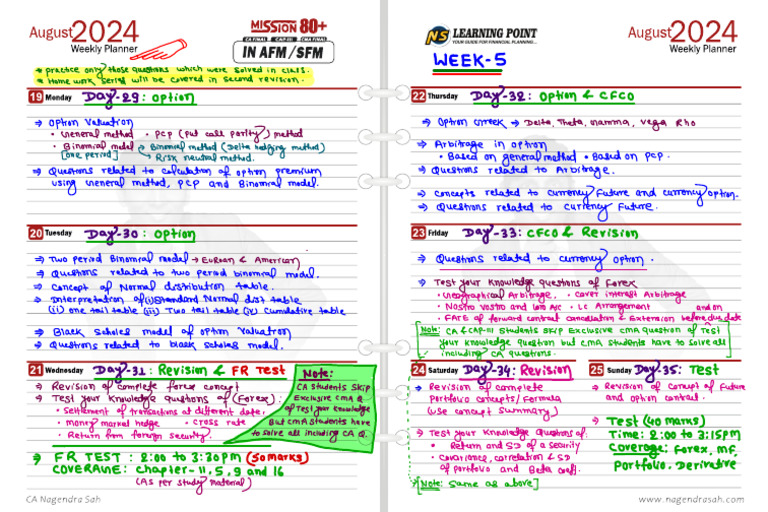 August2024
Weekly Planner
MISSION 80+
CA FINAL CAP-III CMA FINAL
IN AFM/SFM
* Practice only those questions which were solved in class.
* Home work series will be covered in second revision.
19 Monday Day-29: Option
⇒ Option Valuation
• General method • PCP (Put call parity) method
• Binomial model → Binomial method (Delta hedging method)
[one period] → Risk neutral method.
⇒ Questions related to calculation of option premium
using General method, PCP and Binomial model.
20 Tuesday Day-30: Option
⇒ Two period Binomial model → European & American
⇒ Questions related to two period binomial model.
⇒ Concept of Normal distribution table.
⇒ Interpretation of (i) Standard Normal dist table
(ii) one tail table (iii) Two tail table (iv) Cumulative table
⇒ Black scholes model of option valuation
⇒ Questions related to black scholes model.
21 Wednesday Day-31: Revision & FR TEST
⇒ Revision of complete forex concept
⇒ Test your Knowledge questions of (Forex):
• Settlement of transactions at different date.
• money market hedge • cross rate
• Return from foreign security.
Note:
CA Students Skip
Exclusive CMA Q.
of Test your Knowledge
But CMA Students have
to solve all including CA Q.
⇒ FR TEST : 2:00 to 3:30pm (50marks)
COVERAGE: Chapter-11, 5, 9 and 16
(As per study material)
CA Nagendra Sah
NS LEARNING POINT
YOUR GUIDE FOR FINANCIAL PLANNING...
WEEK-5
August2024
Weekly Planner
22 Thursday Day-32: Option & CFCO
⇒ Option Greek → Delta, Theta, Gamma, Vega Rho
⇒ Arbitrage in option
• Based on general method • Based on PCP.
⇒ Questions related to Arbitrage.
⇒ Concepts related to currency Future and currency option.
⇒ Questions related to currency Future.
23 Friday Day-33: CFCO & Revision
⇒ Questions related to currency option.
⇒ Test your Knowledge questions of Forex
• Geographical Arbitrage. • Cover interest Arbitrage
• Nostro Vostro and Loro A/c • LC Arrangement
• FAFE of forward contract cancellation & Extension before, and on due date
Note: CA & CAP-III Students Skip Exclusive CMA question of Test
your Knowledge question but CMA Students have to solve all
including CA questions.
24 Saturday Day-34: Revision
⇒ Revision of complete
Portfolio concepts/Formula
(Use concept Summary)
⇒ Test your Knowledge Questions of.
• Return and SD of a security
• Covariance, correlation & SD
of portfolio and Beta coeff.
[Note: Same as above]
25 Sunday Day-35: Test
⇒ Revision of concept of Future
and option contract.
⇒ Test (40 marks)
Time: 2:00 to 3:15pm
Coverage: Forex, MF,
Portfolio. Derivative
www.nagendrasah.com